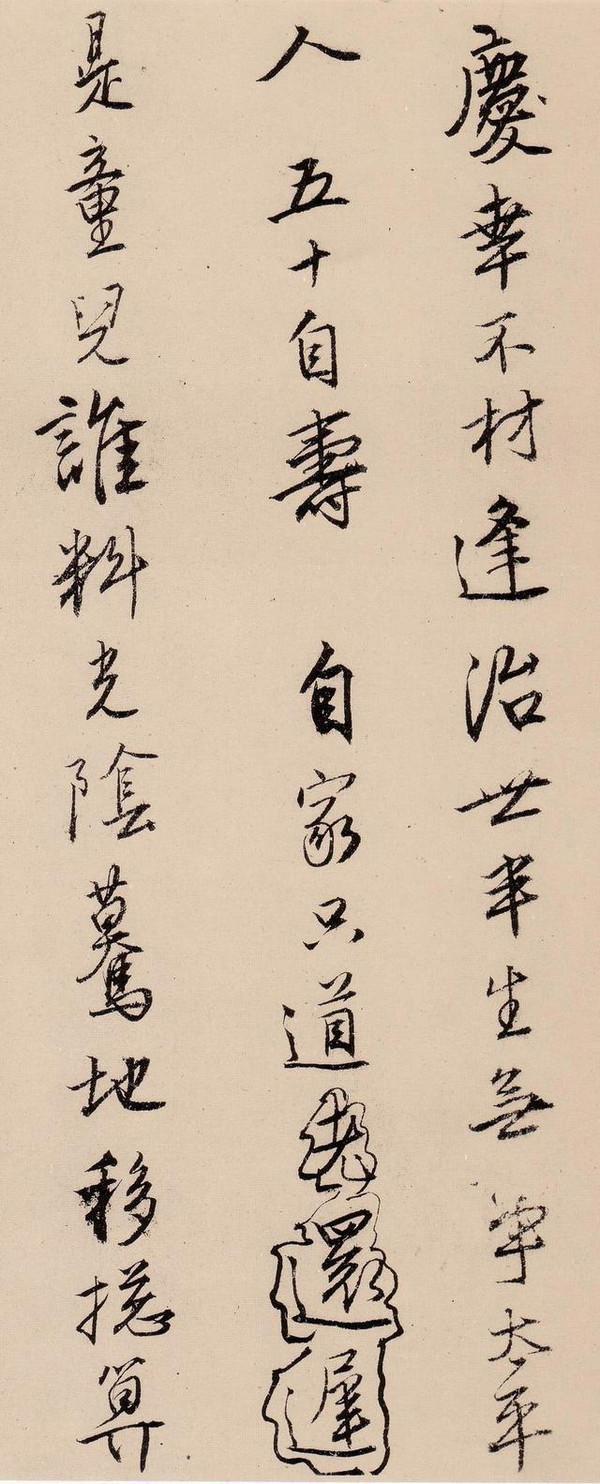 慶幸不材逢治世半生無事太平
人 五十自壽 自家只道老還遲
是童兒誰料光陰驀地移摠算